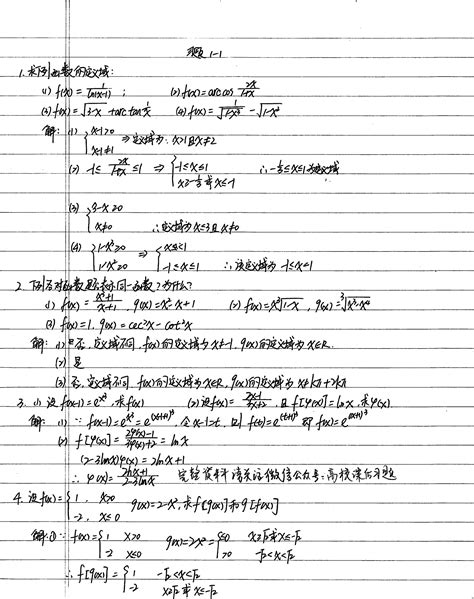 习题 1-1
1. 求下列函数的定义域:
(1) f(x) = 1/ln(x-1) ; (2) f(x) = arccos 2x/1+x
(3) f(x) = √3-x + arctan 1/x (4) f(x) = 1/√1-x² - √1-x²
解: (1) { x-1>0 x-1≠1 ⇒ 定义域为: x>1且x≠2
(2) -1 ≤ 2x/1+x ≤ 1 ⇒ { -1≤x≤1 x≥-1/3 或 x≤-1 ∴ -1/3≤x≤1为定义域
(3) { 3-x≥0 x≠0 ∴定义域为 x≤3且x≠0
(4) ⇒ -1≤x≤1 ∴该定义域为 -1≤x<1
2. 下列各对函数是否相同一函数?为什么?
(1) f(x) = x³+1/x+1, g(x) = x²-x+1 (2) f(x) = x∛1-x, g(x) = ∛x³-x⁴
(3) f(x)=1, g(x) = csc²x - cot²x
解: (1) 否, 定义域不同, f(x)的定义域为x≠-1, g(x)的定义域为x∈R.
(2) 是
(3) 否, 定义域不同, f(x)的定义域为x∈R,
3. (1) 设 f(x-1) = 求f(x) (2) 设f(x) = 2x-1/3x+2, 且 f[φ(x)] = lnx, 求φ(x)
解: (1) ∵ f(x-1) = 令x-1=t, 则 f(t) = 即 f(x) =
(2) f[φ(x)] = 2φ(x)-1/3φ(x)+2 = lnx
(2-3lnx)φ(x) = 2lnx+1
∴ φ(x) = 2lnx+1/2-3lnx 完整资料请关注微信公众号:高校课后习题
4. 设f(x) = { 1, x>0 -2, x≤0 g(x) = 2-x², 求f[g(x)]和g[f(x)]
解: ① ∵ f(x) = { 1 x>0 -2 x≤0 g(x) = 2-x² { ≤0 x≥√2或x≤-√2 >0 -√2<x<√2
∴ f[g(x)] = { 1 -√2<x<√2 -2 x≥√2或x≤-√2